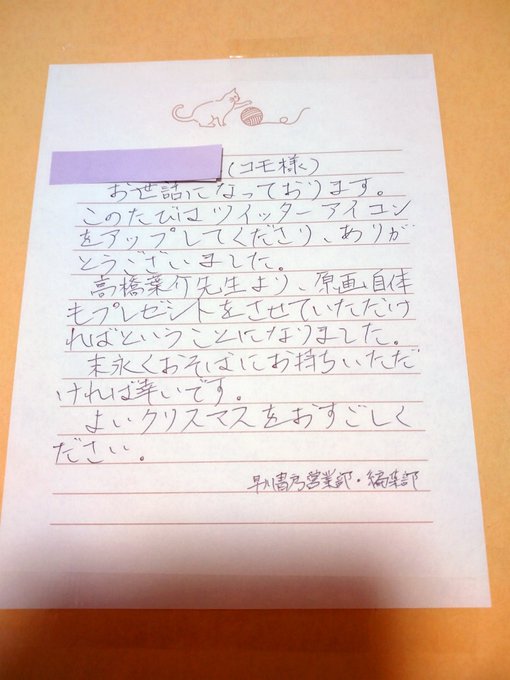 (コモ様)
お世話になっております。
このたびはツイッターアイコン
をアップしてくださり、ありが
とうございました。
高橋葉介先生より、原画自体
もプレゼントをさせていただけ
ればということになりました。
末永くおそばにお持ちいただ
ければ幸いです。
よいクリスマスをおすごしく
ださい。
早川書房営業部・編集部